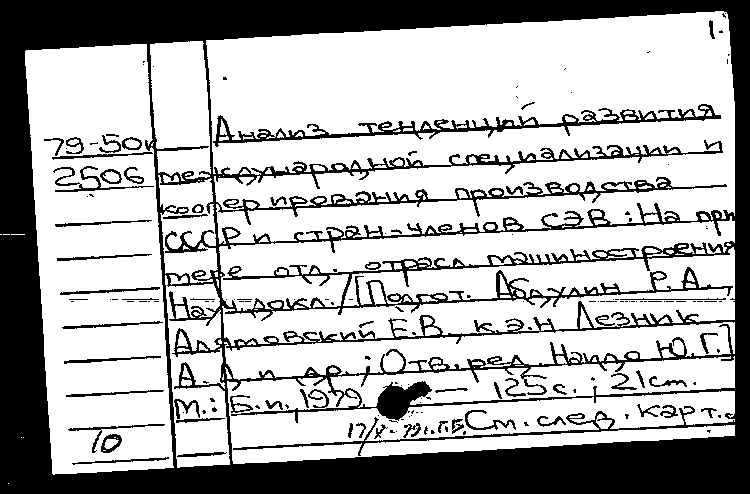 1.
79-50к Анализ тенденций развития
2506 международной специализации и
кооперирования производства
СССР и стран-членов СЭВ: На при
мере отд. отрасл. машиностроения
Науч. докл. / [Подгот. Абдулин Р.А.,
Алятовский Е.В., к.э.н Лезник
А.Д. и др.; Отв. ред. Наидо Ю.Г.]
М.: Б.и., 1979 — 125 с.; 21 см.
10 См. след. карт.